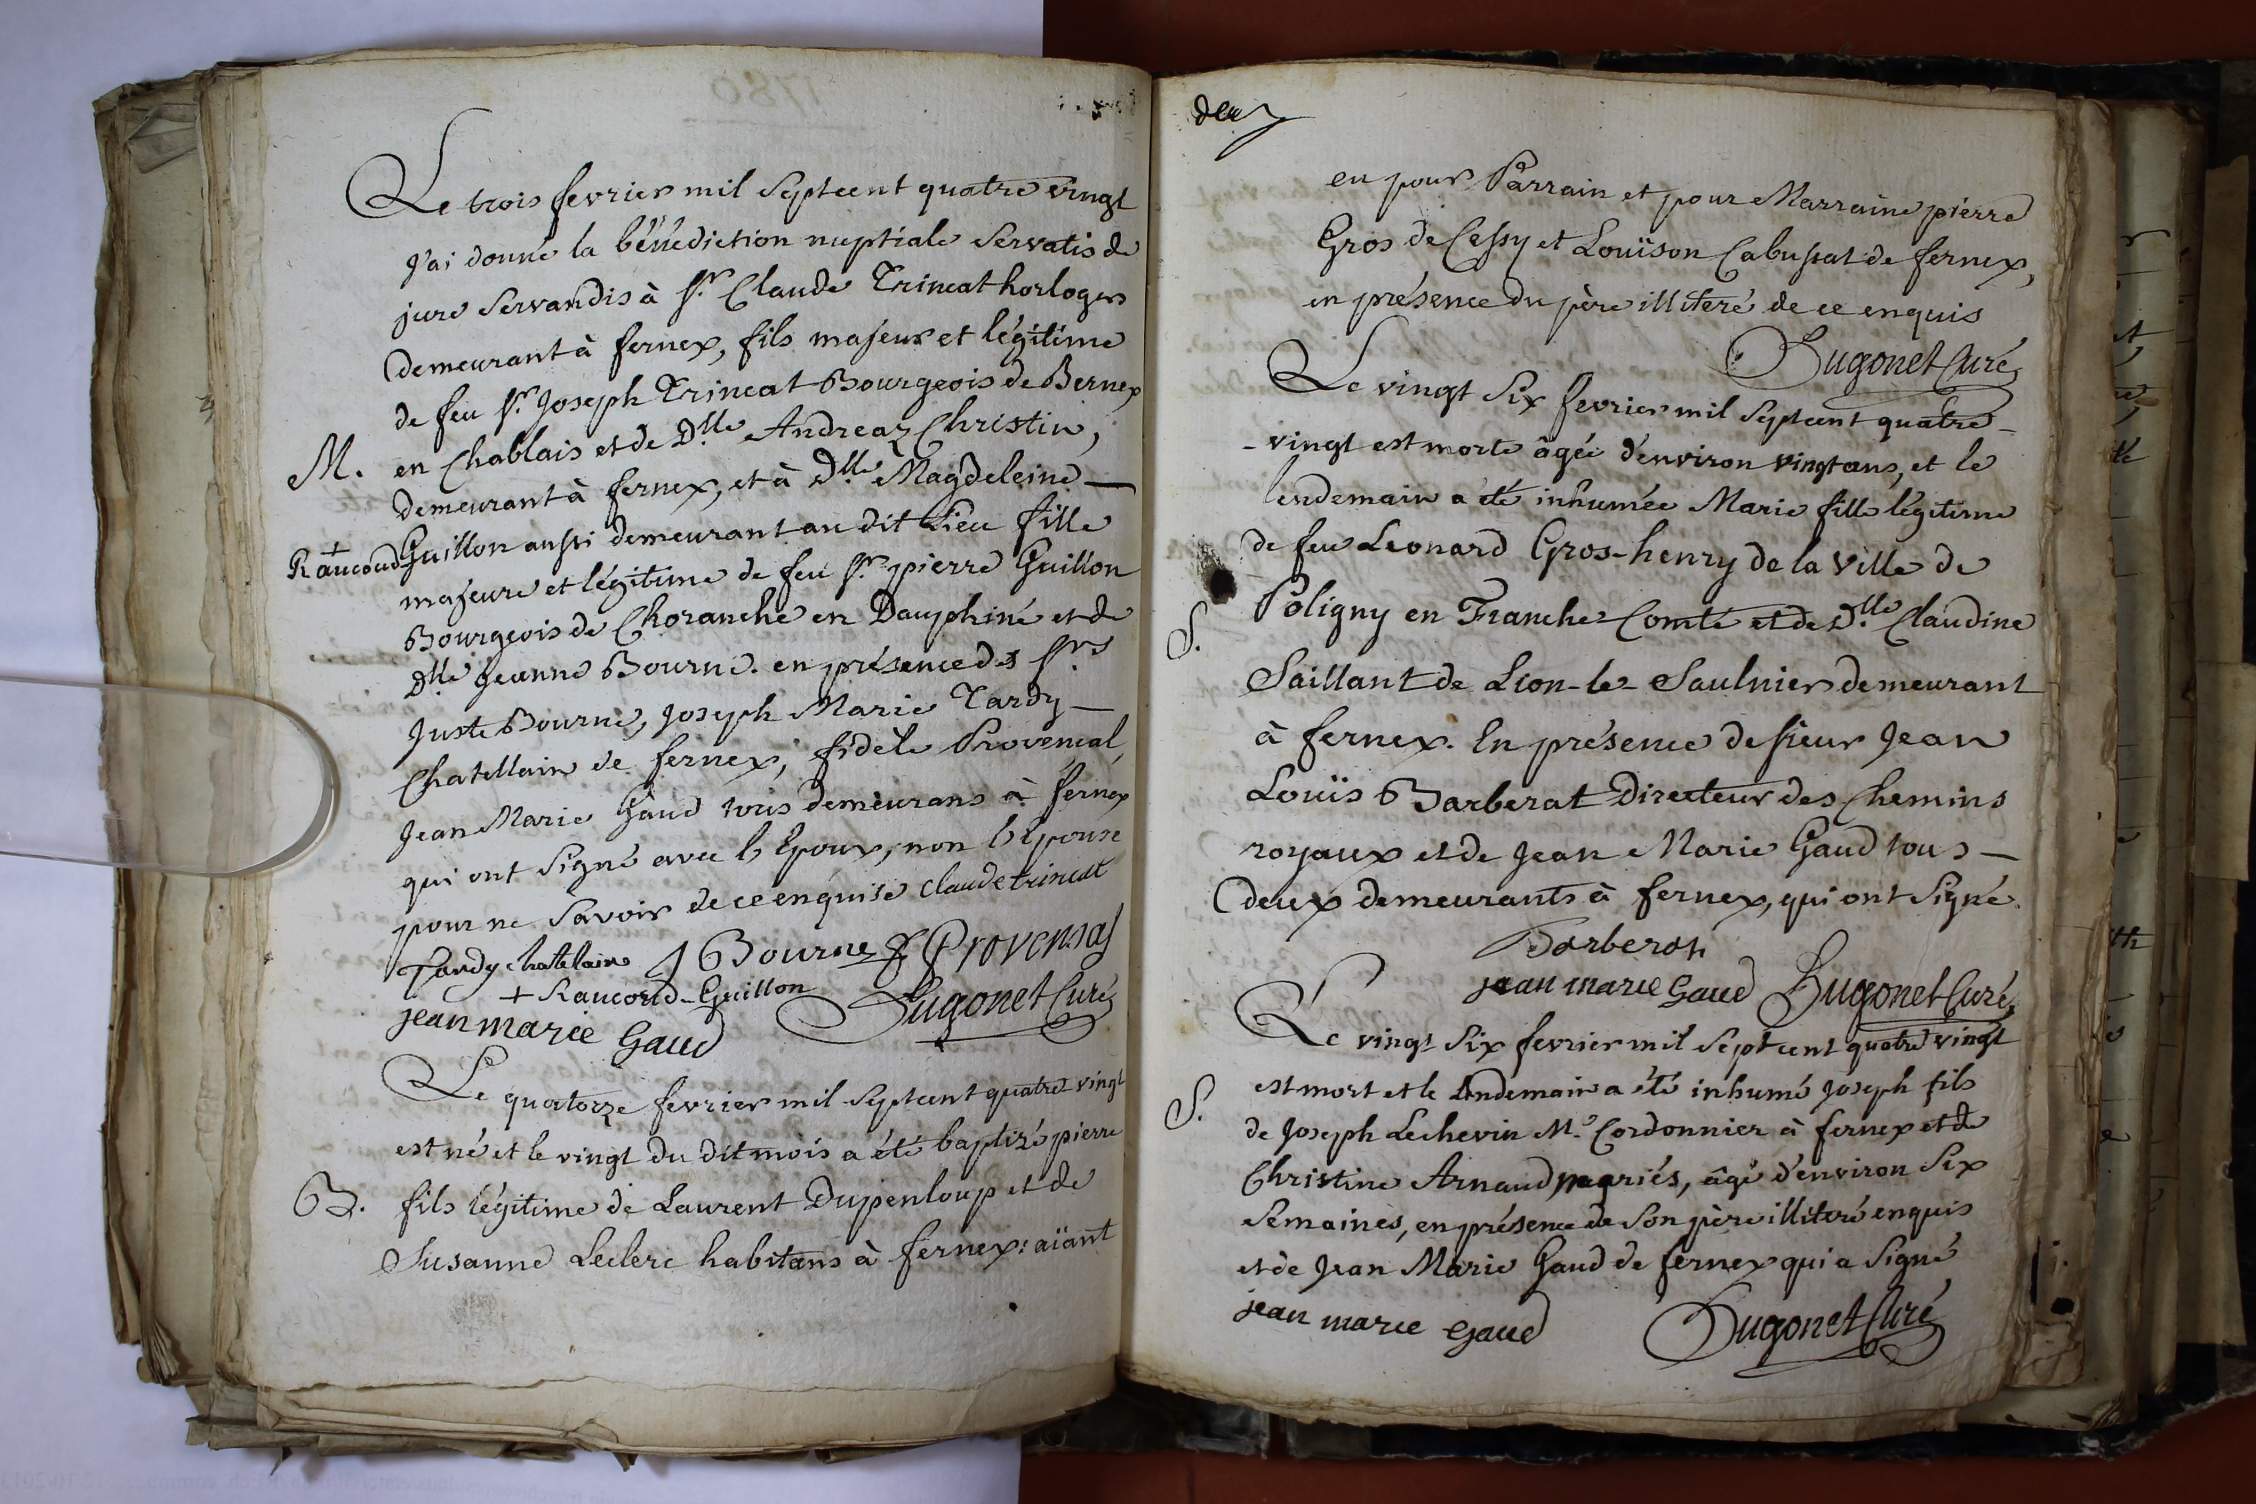 1780
Le trois fevrier mil Septcent quatre vingt
j'ai donné la bénédiction nuptiale Servatis de
jure Servandis à Sr. Claude Trincat horloger
demeurant à fernex, fils majeur et légitime
de feu Sr. Joseph Trincat Bourgeois de Bernex
M. en Chablais et de Dlle Andreaz Christin,
demeurant à fernex, et à Dlle Magdeleine
+ Raucoud Guillon aussi demeurant au dit Lieu fille
majeure et légitime de feu Sr. pierre Guillon
Bourgeois de Choranche en Dauphiné et de
Dlle jeanne Bourne. en présence des Srs
Juste Bourne, Joseph Marie Tardy
Chatellain de fernex, fidèle Provençal,
Jean Marie Gaud tous demeurans à fernex
qui ont Signé avec l'Epoux, non l'Epouse
pour ne Savoir de ce enquise Claude trincat
Tardy chatelain J Bourne f Provensal
+ Raucourd-Guillon Hugonet Curé
jean marie Gaud
Le quatorze fevrier mil Septcent quatre vingt
est né et le vingt du dit mois a été baptizé pierre
B. fils légitime de Laurent Dupenloup et de
Susanne Leclerc habitans à fernex: aïant
deux
eu pour Parrain et pour Marraine pierre
Gros de Cessy et Louïson Cabussat de fernex,
en présence du père illiteré de ce enquis
Hugonet Curé
Le vingt Six fevrier mil Septcent quatre-
-vingt est morte âgée d'environ vingt ans, et le
lendemain a été inhumée Marie fille légitime
de feu Leonard Gros-henry de la Ville de
S. Poligny en Franche Comté et de Dlle Claudine
Saillant de Lion-le-Saulnier demeurant
à fernex. En présence de sieur Jean
Louïs Barberat Directeur des Chemins
royaux et de Jean Marie Gaud tous
deux demeurants à fernex, qui ont Signé.
Barberat
jean marie Gaud Hugonet Curé
Le vingt Six fevrier mil Septcent quatre vingt
S. est mort et le Lendemain a été inhumé Joseph fils
de Joseph Lechevin Me. Cordonnier à fernex et de
Christine Arnaud mariés, âgé d'environ Six
Semaines, en présence de Son père illiteré enquis
et de Jean Marie Gaud de fernex qui a Signé
jean marie Gaud Hugonet Curé